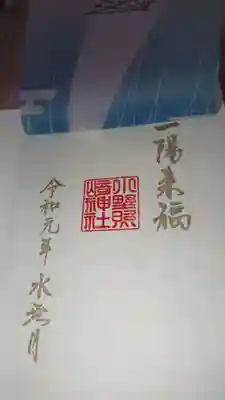 一陽来福
小野照
崎神社
令和元年 水無月